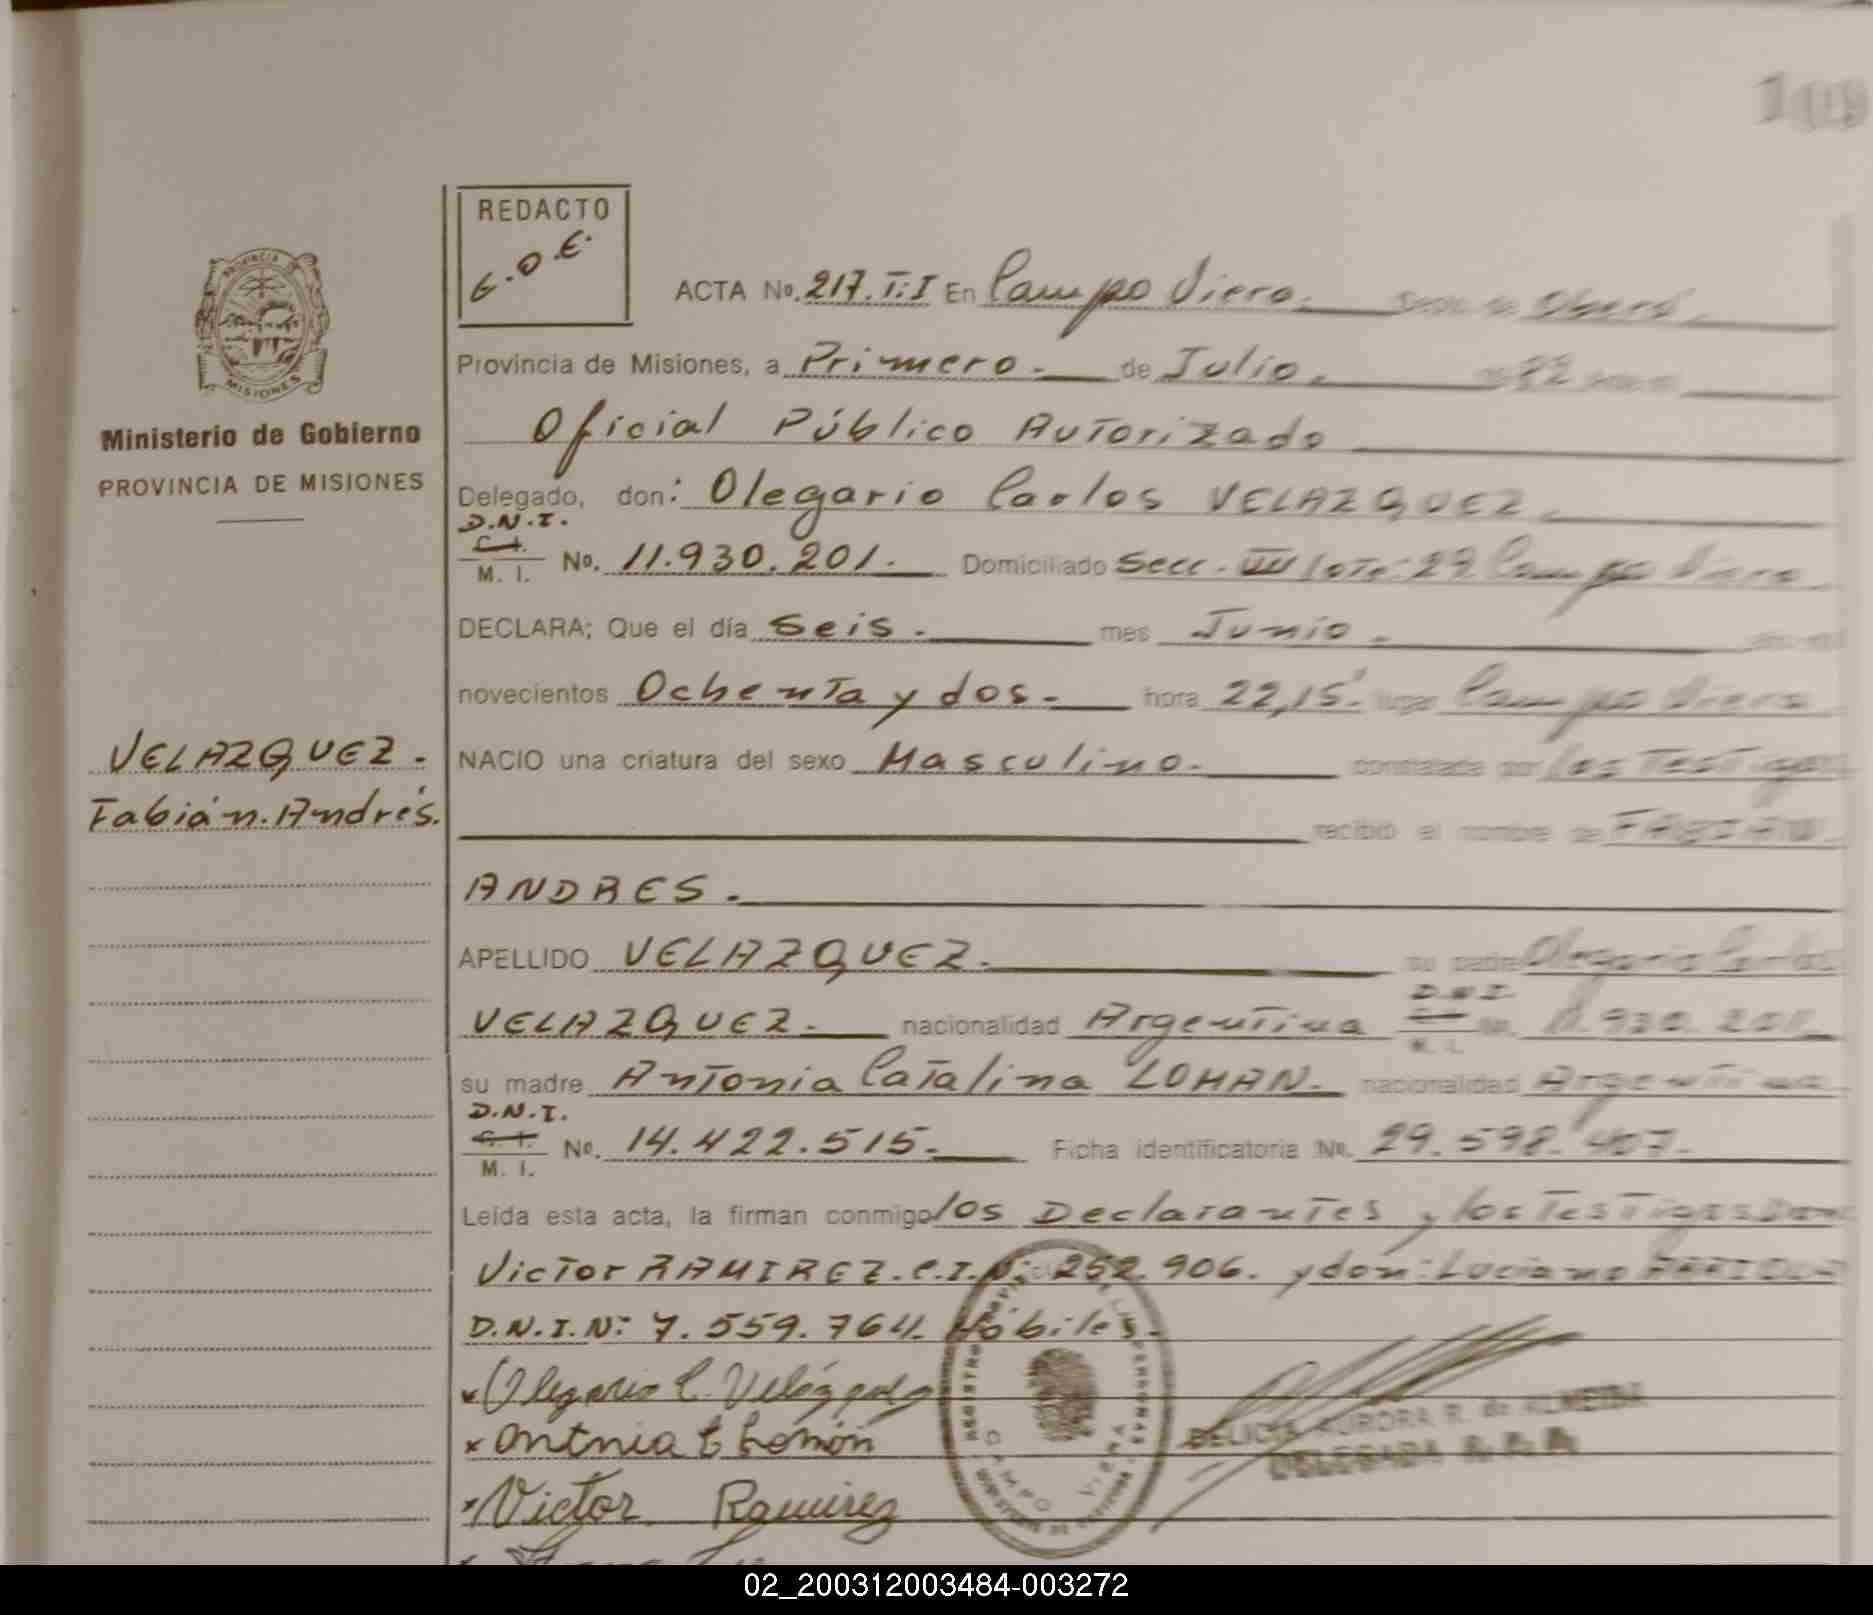 REDACTO
G.O.E.
ACTA No. 217. T:I En Campo Viera. Depto. de Oberá.
Provincia de Misiones, a Primero. de Julio. 82
Oficial Público Autorizado
Delegado, don: Olegario Carlos VELAZQUEZ.
D.N.I.
C. I.
M. I. No. 11.930.201. Domiciliado Secc. III lote: 29. Campo Viera.
DECLARA; Que el día Seis. mes Junio.
novecientos Ochenta y dos. hora 22,15'. lugar Campo Viera
NACIO una criatura del sexo Masculino. constatada por los Testigos
recibió el nombre de FABIAN.
ANDRES.
APELLIDO VELAZQUEZ. su padre Olegario Carlos
VELAZQUEZ. nacionalidad Argentina D.N.I. C. I. No. 11.930.201.
M. I.
su madre Antonia Catalina LOMAN. nacionalidad Argentina
D.N.I.
C. I.
M. I. No. 14.422.515. Ficha identificatoria No. 29.598.407.
Leída esta acta, la firman conmigo los Declarantes y los Testigos Don
Victor RAMIREZ. C.I.Nº: 252.906. y don: Luciano
D.N.I.Nº: 7.559.764. Hábiles.
x Olegario C. Velázquez
x Antnia C Lomón
x Victor Ramirez
PROVINCIA DE
MISIONES
Ministerio de Gobierno
PROVINCIA DE MISIONES
VELAZQUEZ.
Fabián. Andrés.
CAMPO VIERA
DELICIA AURORA R. de ALMEIDA
DELEGADA
02_200312003484-003272